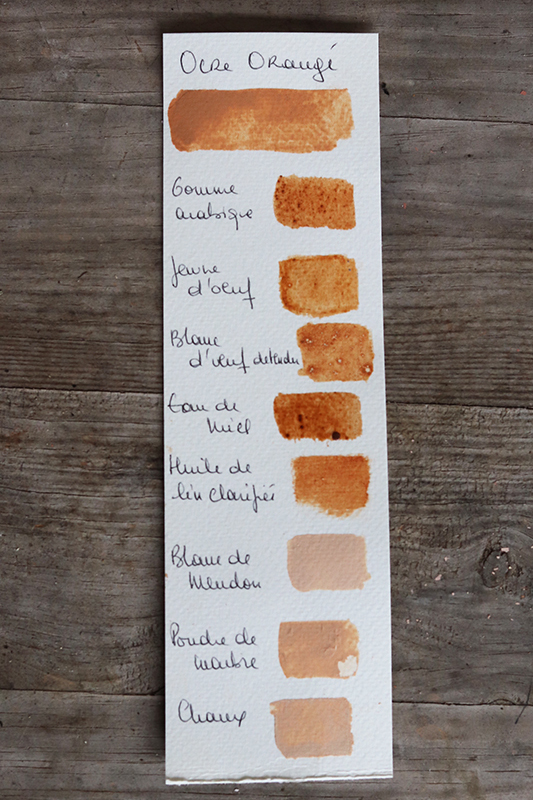 Ocre Orangé
Gomme
arabique
Jaune
d'oeuf
Blanc
d'oeuf détendu
Eau de
Miel
Huile de
lin clarifiée
Blanc de
Meudon
Poudre de
marbre
Chaux